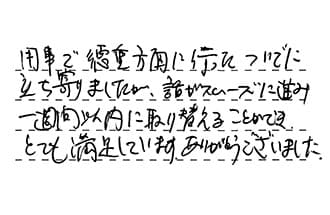 用事で徳重方面に行ったついでに
立ち寄りましたが、話がスムーズに進み
一週間以内に取り替えることができ
とても満足しています。ありがとうございました。